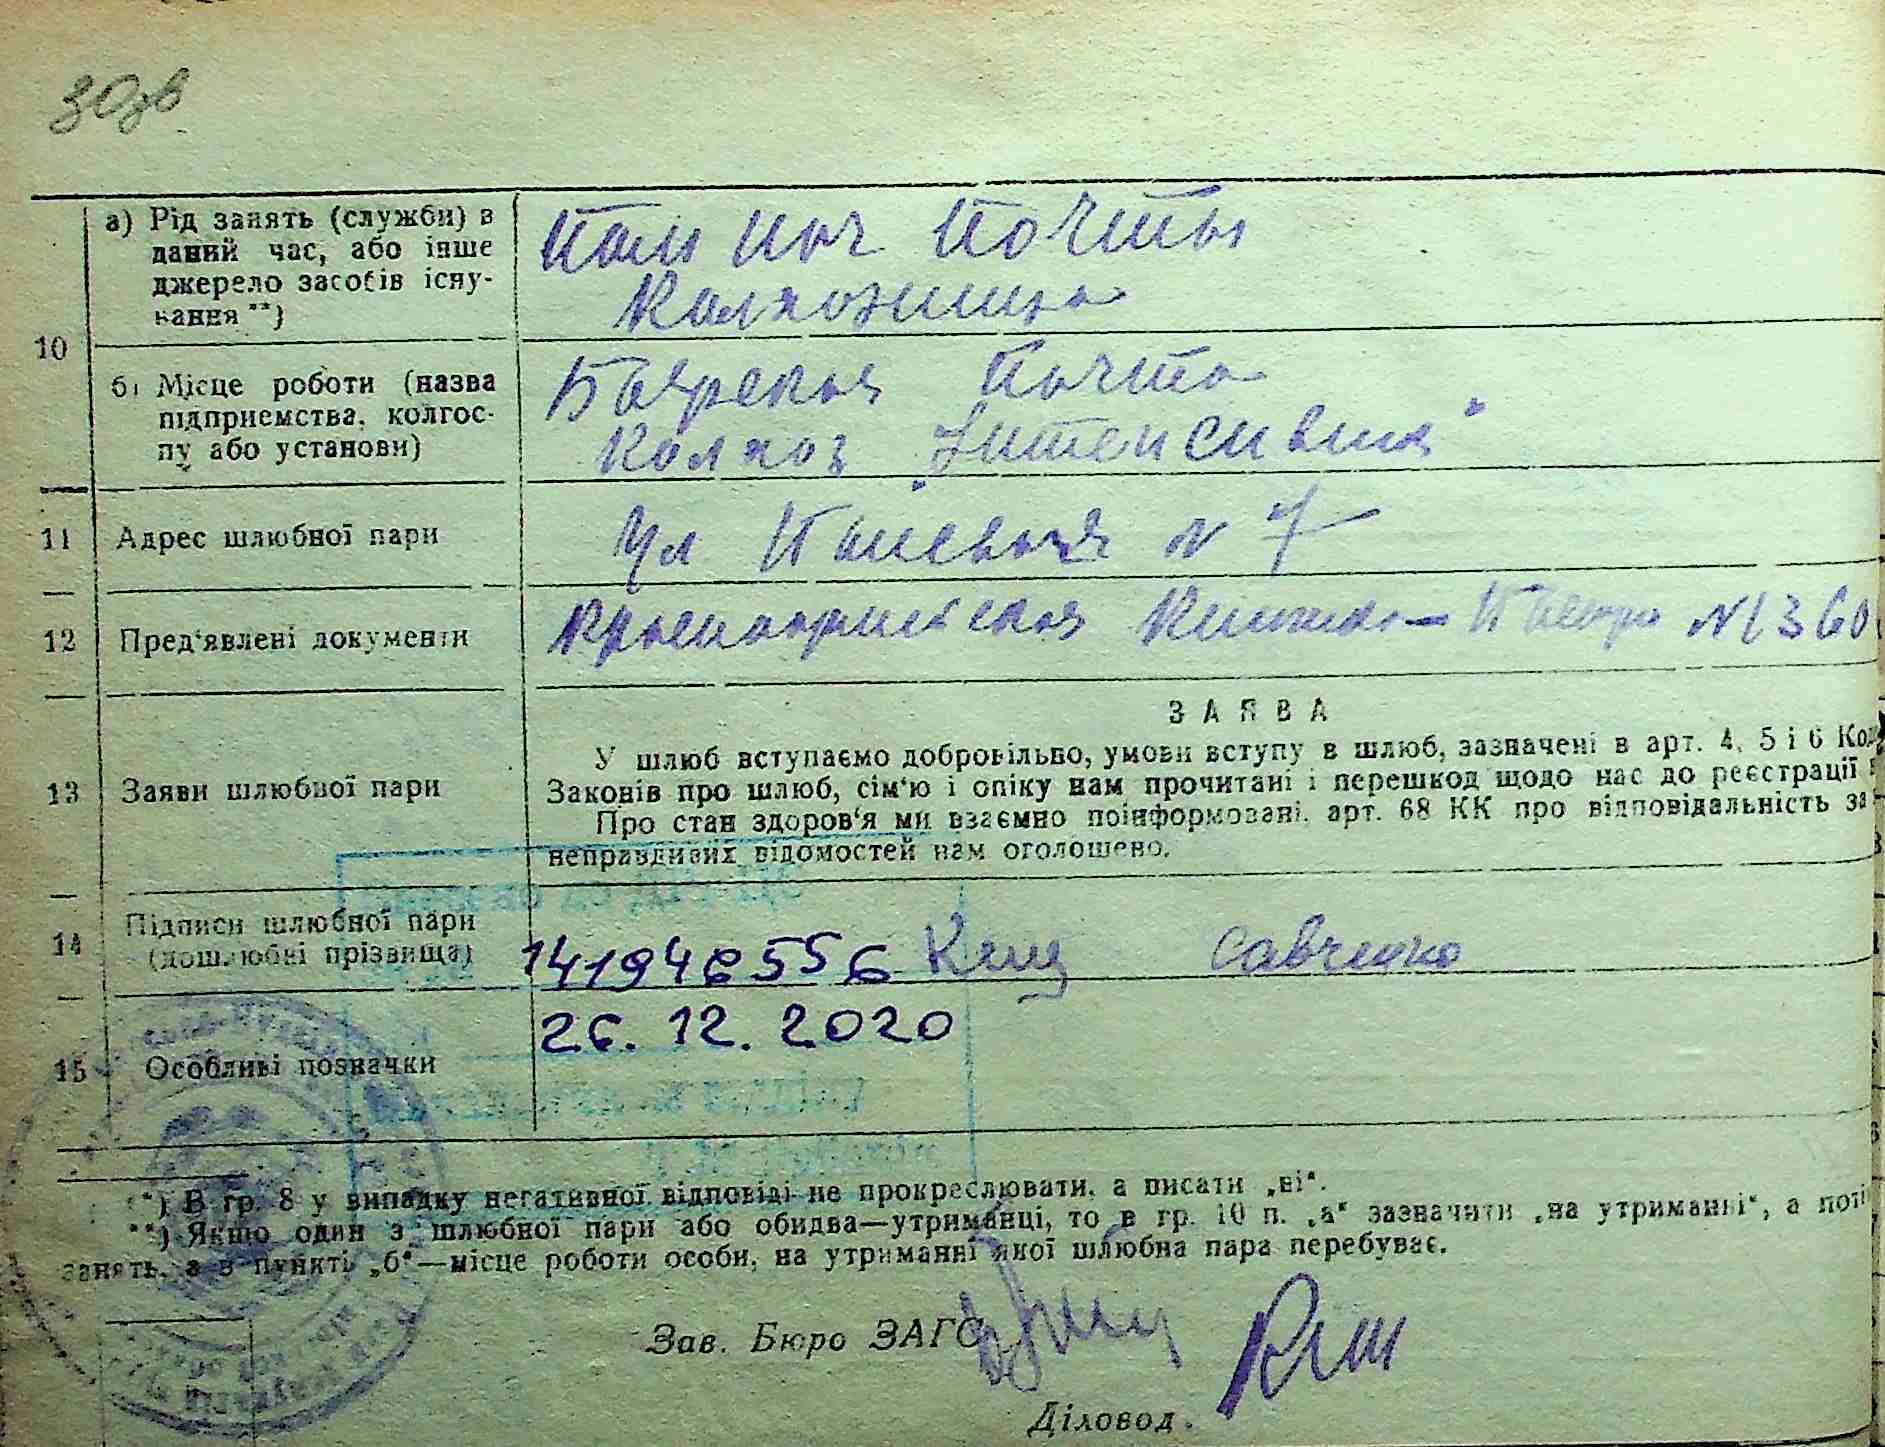 30зв
10
а) Рід занять (служби) в
даний час, або інше
джерело засобів існу-
вання **)
Пом Нач Почты
Колхозница
б) Місце роботи (назва
підприємства, колгос-
пу або установи)
Почта
Колхоз „Интенсивник"
11
Адрес шлюбної пари
Ул Полевая N 7
12
Пред'явлені документи
Красноармейская Книжка — N 1360
13
Заяви шлюбної пари
ЗАЯВА
У шлюб вступаємо добровільно, умови вступу в шлюб, зазначені в арт. 4, 5 і 6
Законів про шлюб, сім'ю і опіку нам прочитані і перешкод щодо нас до реєстрації
Про стан здоров'я ми взаємно поінформовані. арт. 68 КК про відповідальність за
неправдивих відомостей нам оголошено.
14
Підписи шлюбної пари
(дошлюбні прізвища)
141946556 Савченко
15
Особливі позначки
26.12.2020
*) В гр. 8 у випадку негативної відповіді не прокреслювати, а писати „ні".
**) Якщо один з шлюбної пари або обидва—утриманці, то в гр. 10 п. „а" зазначити „на утриманні", а
занять, а в пункті „б"—місце роботи особи, на утриманні якої шлюбна пара перебуває.
Зав. Бюро ЗАГС
Діловод.